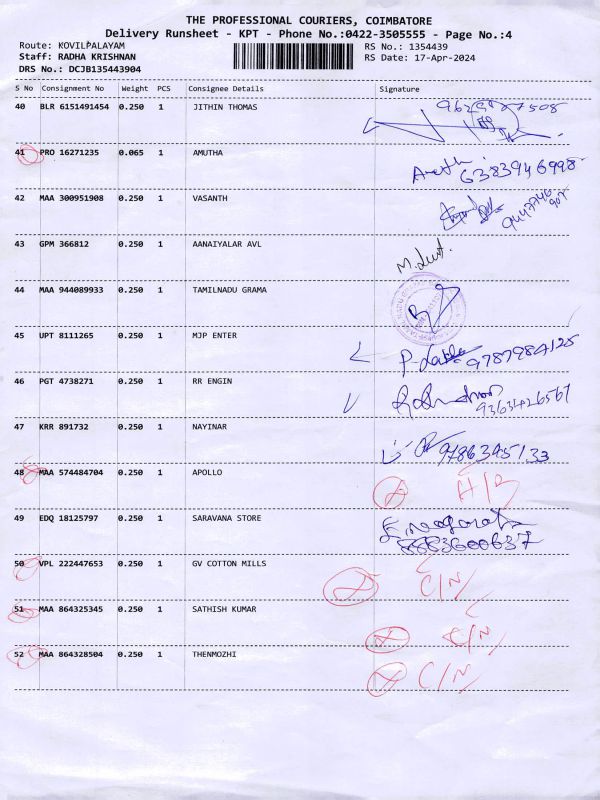 THE PROFESSIONAL COURIERS, COIMBATORE
Delivery Runsheet - KPT - Phone No.:0422-3505555 - Page No.:4
Route: KOVILPALAYAM RS No.: 1354439
Staff: RADHA KRISHNAN RS Date: 17-Apr-2024
DRS No.: DCJB135443904
S No Consignment No Weight PCS Consignee Details Signature
40 BLR 6151491454 0.250 1 JITHIN THOMAS
41 PRO 16271235 0.065 1 AMUTHA 6383946998
42 MAA 300951908 0.250 1 VASANTH
43 GPM 366812 0.250 1 AANAIYALAR AVL
44 MAA 944089933 0.250 1 TAMILNADU GRAMA
45 UPT 8111265 0.250 1 MJP ENTER 9787984125
46 PGT 4738271 0.250 1 RR ENGIN 9363426567
47 KRR 891732 0.250 1 NAYINAR 9786345133
48 MAA 574484704 0.250 1 APOLLO
49 EDQ 18125797 0.250 1 SARAVANA STORE
8883600637
50 VPL 222447653 0.250 1 GV COTTON MILLS C/N
51 MAA 864325345 0.250 1 SATHISH KUMAR C/N
52 MAA 864328504 0.250 1 THENMOZHI C/N